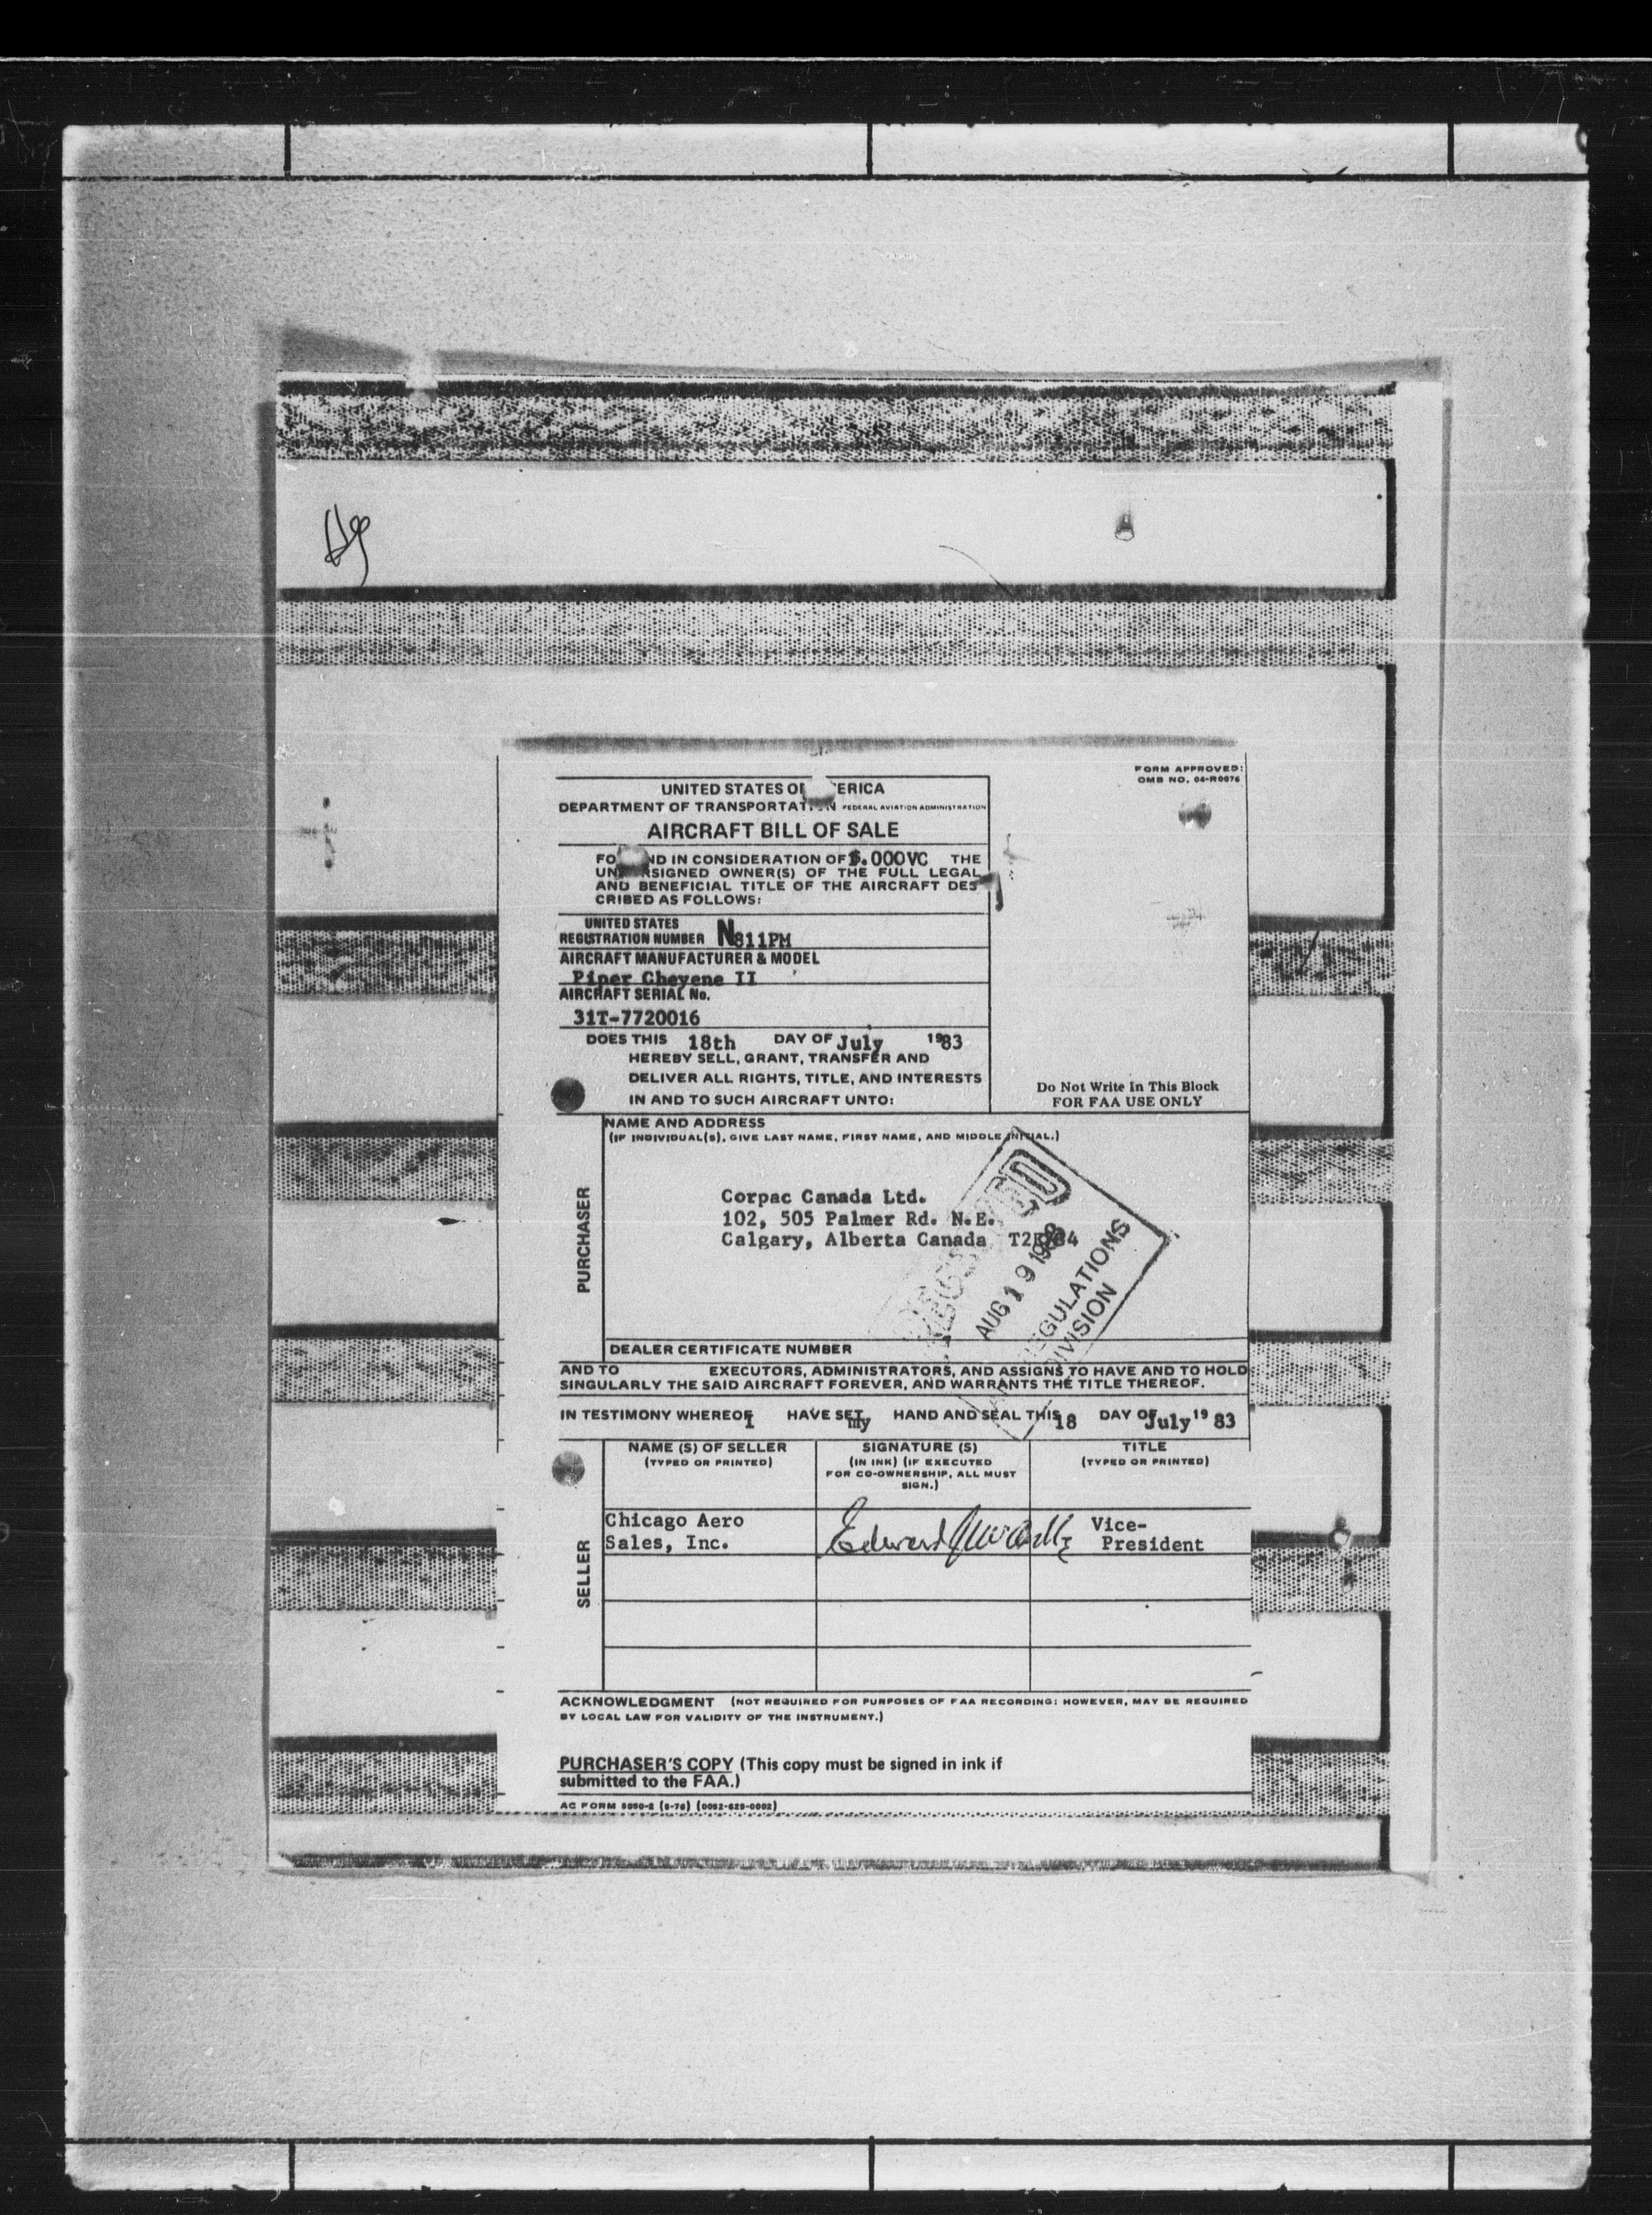 FORM APPROVED:
OMB NO. 04-R0076
UNITED STATES OF ERICA
DEPARTMENT OF TRANSPORTATION FEDERAL AVIATION ADMINISTRATION
AIRCRAFT BILL OF SALE
FO ND IN CONSIDERATION OF $.000VC THE
UN RSIGNED OWNER(S) OF THE FULL LEGAL
AND BENEFICIAL TITLE OF THE AIRCRAFT DES
CRIBED AS FOLLOWS:
UNITED STATES
REGISTRATION NUMBER N811PM
AIRCRAFT MANUFACTURER & MODEL
Piper Cheyene II
AIRCRAFT SERIAL No.
31T-7720016
DOES THIS 18th DAY OF July 1983
HEREBY SELL, GRANT, TRANSFER AND
DELIVER ALL RIGHTS, TITLE, AND INTERESTS
IN AND TO SUCH AIRCRAFT UNTO:
Do Not Write In This Block
FOR FAA USE ONLY
PURCHASER
NAME AND ADDRESS
(IF INDIVIDUAL(S), GIVE LAST NAME, FIRST NAME, AND MIDDLE INITIAL.)
Corpac Canada Ltd.
102, 505 Palmer Rd. N.E.
Calgary, Alberta Canada
AUG 19 1983
REGULATIONS
DIVISION
DEALER CERTIFICATE NUMBER
AND TO EXECUTORS, ADMINISTRATORS, AND ASSIGNS TO HAVE AND TO HOLD
SINGULARLY THE SAID AIRCRAFT FOREVER, AND WARRANTS THE TITLE THEREOF.
IN TESTIMONY WHEREOF I HAVE SET my HAND AND SEAL THIS 18 DAY OF July 19 83
SELLER
NAME (S) OF SELLER
(TYPED OR PRINTED)
SIGNATURE (S)
(IN INK) (IF EXECUTED
FOR CO-OWNERSHIP, ALL MUST
SIGN.)
TITLE
(TYPED OR PRINTED)
Chicago Aero
Sales, Inc.
Edward
Vice-
President
ACKNOWLEDGMENT (NOT REQUIRED FOR PURPOSES OF FAA RECORDING: HOWEVER, MAY BE REQUIRED
BY LOCAL LAW FOR VALIDITY OF THE INSTRUMENT.)
PURCHASER'S COPY (This copy must be signed in ink if
submitted to the FAA.)
AC FORM 8050-2 (8-76) (0052-629-0002)